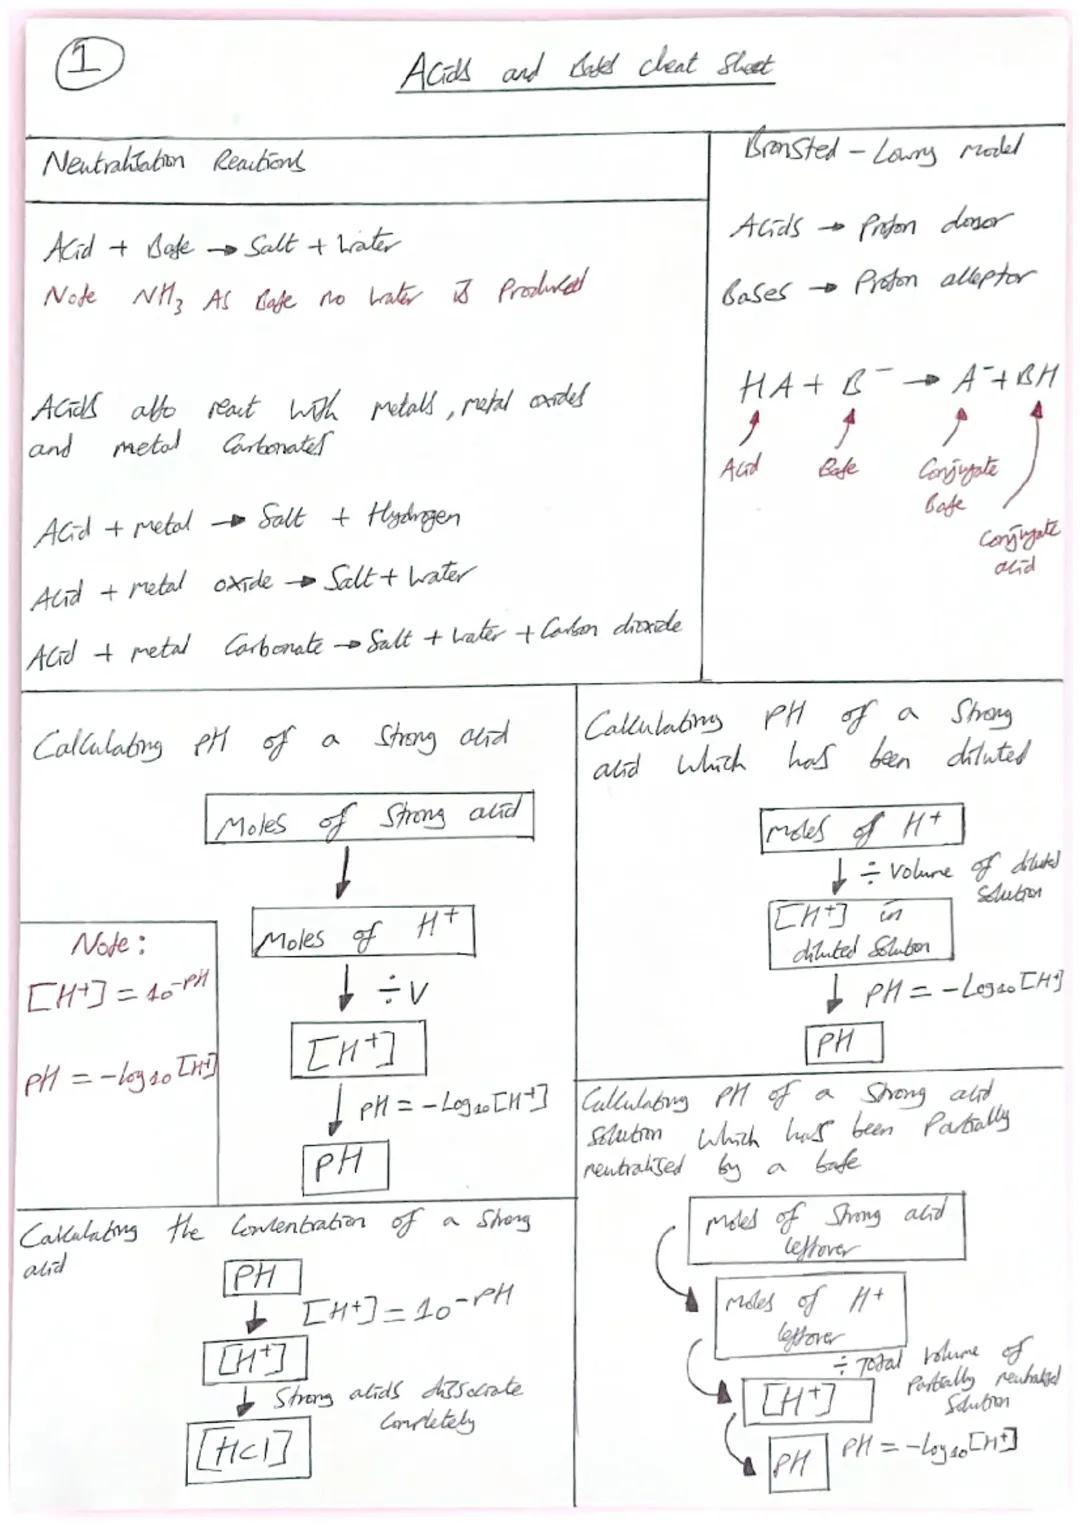 1
Acids and Bases cheat sheet
Neutralisation Reactions
Acid + Base → Salt + Water
Note NH3 As Base no water is Produced
Acids also react with metals, metal oxides
and metal Carbonates
Acid + metal → Salt + Hydrogen
Acid + metal oxide → Salt + Water
Acid + metal Carbonate → Salt + Water + Carbon dioxide
Bronsted - Lowry model
Acids → Proton donor
Bases → Proton acceptor
HA + B⁻ → A⁻ + BH
Acid Base Conjugate
Base
Conjugate
acid
Calculating PH of a Strong acid
Moles of Strong acid
Moles of H+
÷ V
[H+]
PH = -Log10[H+]
PH
Note:
[H+] = 10-PH
PH = -log10[H+]
Calculating PH of a Strong
acid which has been diluted
moles of H+
÷ Volume of diluted
Solution
[H+] in
diluted Solution
PH = -Log10[H+]
PH
Calculating the Concentration of a Strong
acid
PH
[H+] = 10-PH
[H+]
Strong acids dissociate
Completely
[HCl]
Calculating PH of a Strong acid
Solution which has been Partially
neutralised by a base
moles of Strong acid
leftover
moles of H+
leftover
÷ Total volume of
Partially neutralised
Solution
[H+]
PH = -log10[H+]
PH